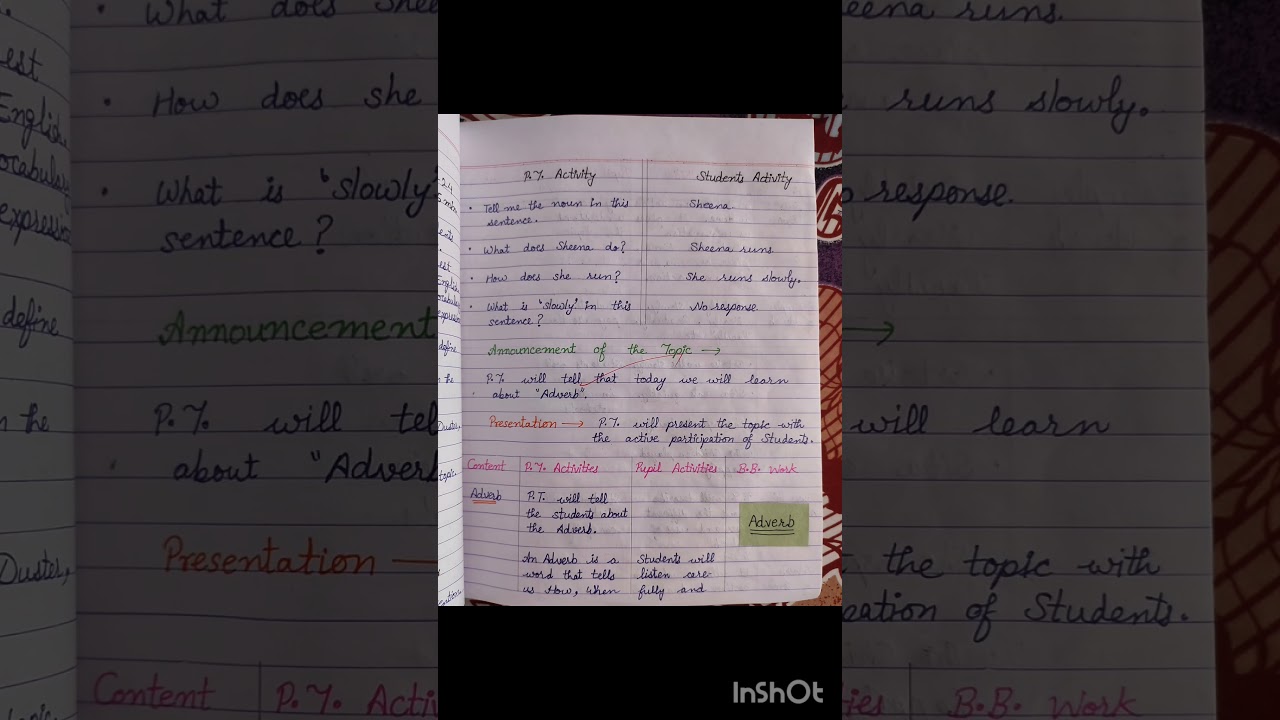 P.T. Activity Students Activity
• Tell me the noun in this Sheena.
sentence.
• What does Sheena do? Sheena runs
• How does she run? She runs slowly.
• What is "slowly" in this No response
sentence?
Announcement of the Topic →
P.T. will tell that today we will learn
about "Adverb".
Presentation → P.T. will present the topic with
the active participation of Students.
Content P.T. Activities Pupil Activities B.B. Work
Adverb P.T. will tell
the students about
the Adverb.
Adverb
An Adverb is a Students will
word that tells listen care-
us How, when fully and
InShOt